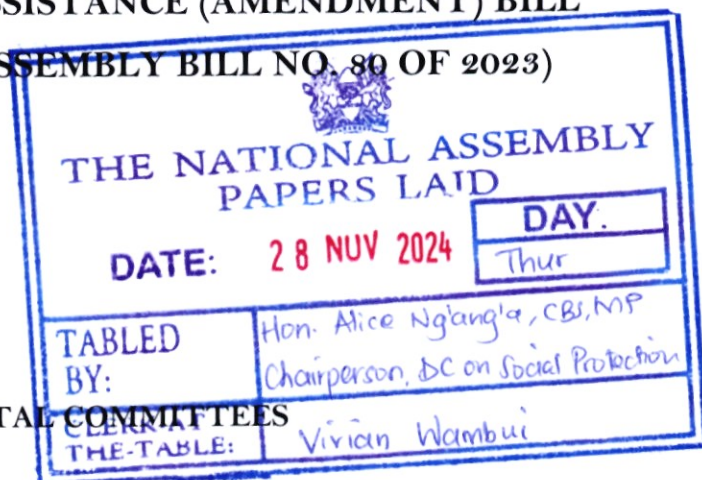 SSISTANCE (AMENDMENT) BILL
SSEMBLY BILL NO. 80 OF 2023)
THE NATIONAL ASSEMBLY
PAPERS LAID
DATE: 28 NUV 2024
DAY.
Thur
TABLED BY:
Hon. Alice Ng'ang'a, CBS, MP
Chairperson, DC on Social Protection
TAL COMMITTEES
CLERK AT
THE-TABLE:
Vivian Wambui